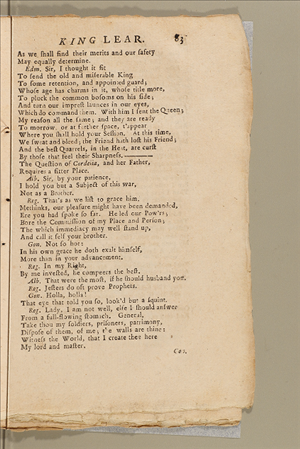 KING LEAR. 83
As we shall find their merits and our safety
May equally determine.
Edm. Sir, I thought it fit
To send the old and miserable King
To some retention, and appointed guard;
Whose age has charms in it, whose title more,
To pluck the common bosoms on his side;
And turn our imprest launces in our eyes,
Which do command them. With him I sent the Queen;
My reason all the same; and they are ready
To morrow, or at further space, t'appear
Where you shall hold your Session. At this time,
We sweat and bleed; the Friend hath lost his Friend;
And the best Quarrels, in the Heat, are curst
By those that feel their Sharpness.
The Question of Cordelia, and her Father,
Requires a fitter Place.
Alb. Sir, by your patience,
I hold you but a Subject of this war,
Not as a Brother.
Reg. That's as we list to grace him.
Methinks, our pleasure might have been demanded,
Ere you had spoke so far. He led our Pow'rs;
Bore the Commission of my Place and Person;
The which immediacy may well stand up,
And call it self your brother.
Gon. Not so hot:
In his own grace he doth exalt himself,
More than in your advancement.
Reg. In my Right,
By me invested, he compeers the best.
Alb. That were the most, if he should husband you.
Reg. Jesters do oft prove Prophets.
Gon. Holla, holla!
That eye that told you so, look'd but a squint.
Reg. Lady, I am not well, else I should answer
From a full-flowing stomach. General,
Take thou my soldiers, prisoners, patrimony,
Dispose of them, of me; the walls are thine:
Witness the World, that I create thee here
My lord and master.
Gon.